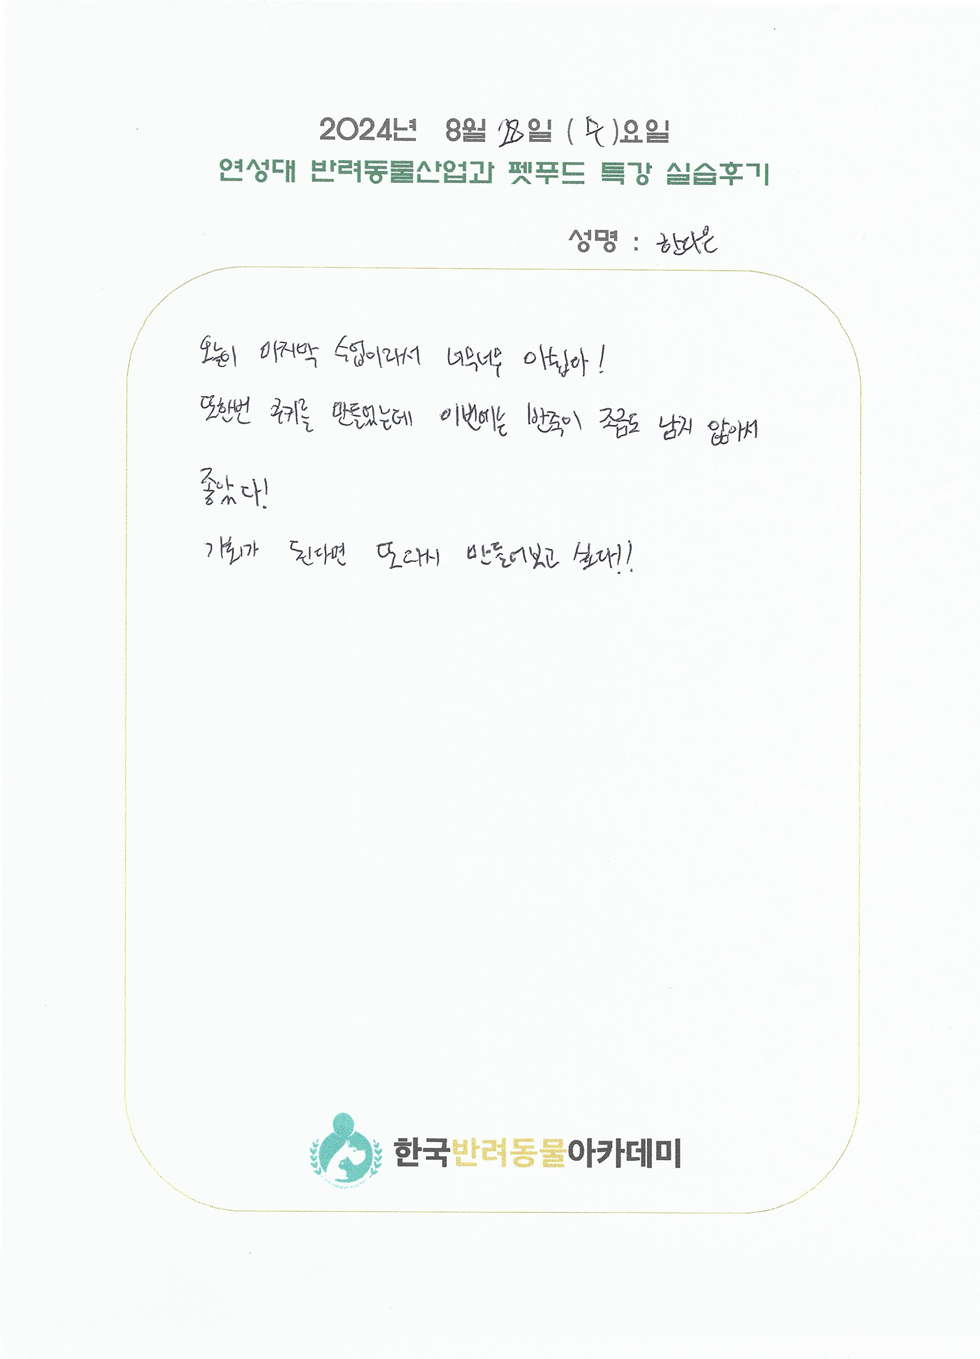 2024년 8월 28일 (수)요일
연성대 반려동물산업과 펫푸드 특강 실습후기
성명 : 한다은
오늘이 마지막 수업이라서 너무너무 아쉽다!
또한번 쿠키를 만들었는데 이번에는 반죽이 조금도 남지 않아서
좋았다!
기회가 된다면 또다시 만들어보고 싶다!!
한국반려동물아카데미